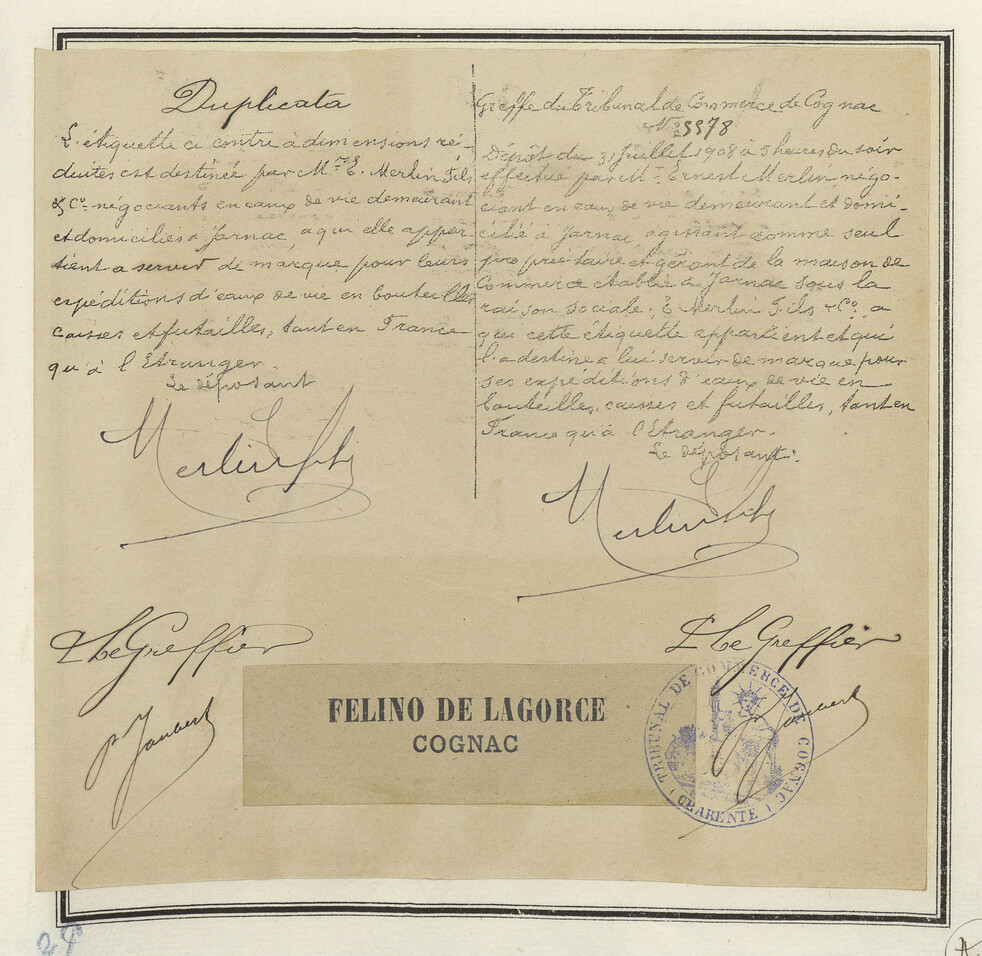 Duplicata
L'étiquette ci contre à dimensions ré-
duites est destinée par Mrs E. Merlin Fils
& Co. négociants en eaux de vie demeurant
et domiciliés à Jarnac, a qui elle appar-
tient a servir de marque pour leurs
expéditions d'eaux de vie en bouteilles
caisses et futailles, tant en France
qu'à l'Etranger.
Le déposant
Merlin Fils
Le Greffier
Greffe du Tribunal de Commerce de Cognac
No 5578
Dépôt du 31 Juillet 1908 à 5 heures du soir
effectué par Mr Ernest Merlin, négo-
ciant en eaux de vie demeurant et domi-
cilié à Jarnac, agissant comme seul
propriétaire et gérant de la maison de
Commerce établie à Jarnac sous la
raison sociale: E Merlin Fils & Co. a
qui cette étiquette appartient et qui
l'a destine a lui servir de marque pour
ses expéditions d'eaux de vie en
bouteilles, caisses et futailles, tant en
France qu'à l'Etranger.
Le déposant.
Merlin Fils
Le Greffier
FELINO DE LAGORCE
COGNAC
TRIBUNAL DE COMMERCE DE COGNAC
(CHARENTE)